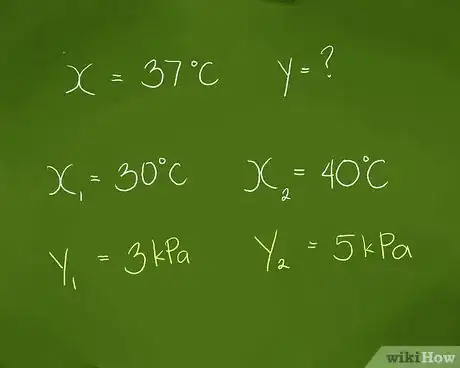 x = 37°C y = ?
x₁ = 30°C x₂ = 40°C
y₁ = 3 kPa y₂ = 5 kPa
wikiHow